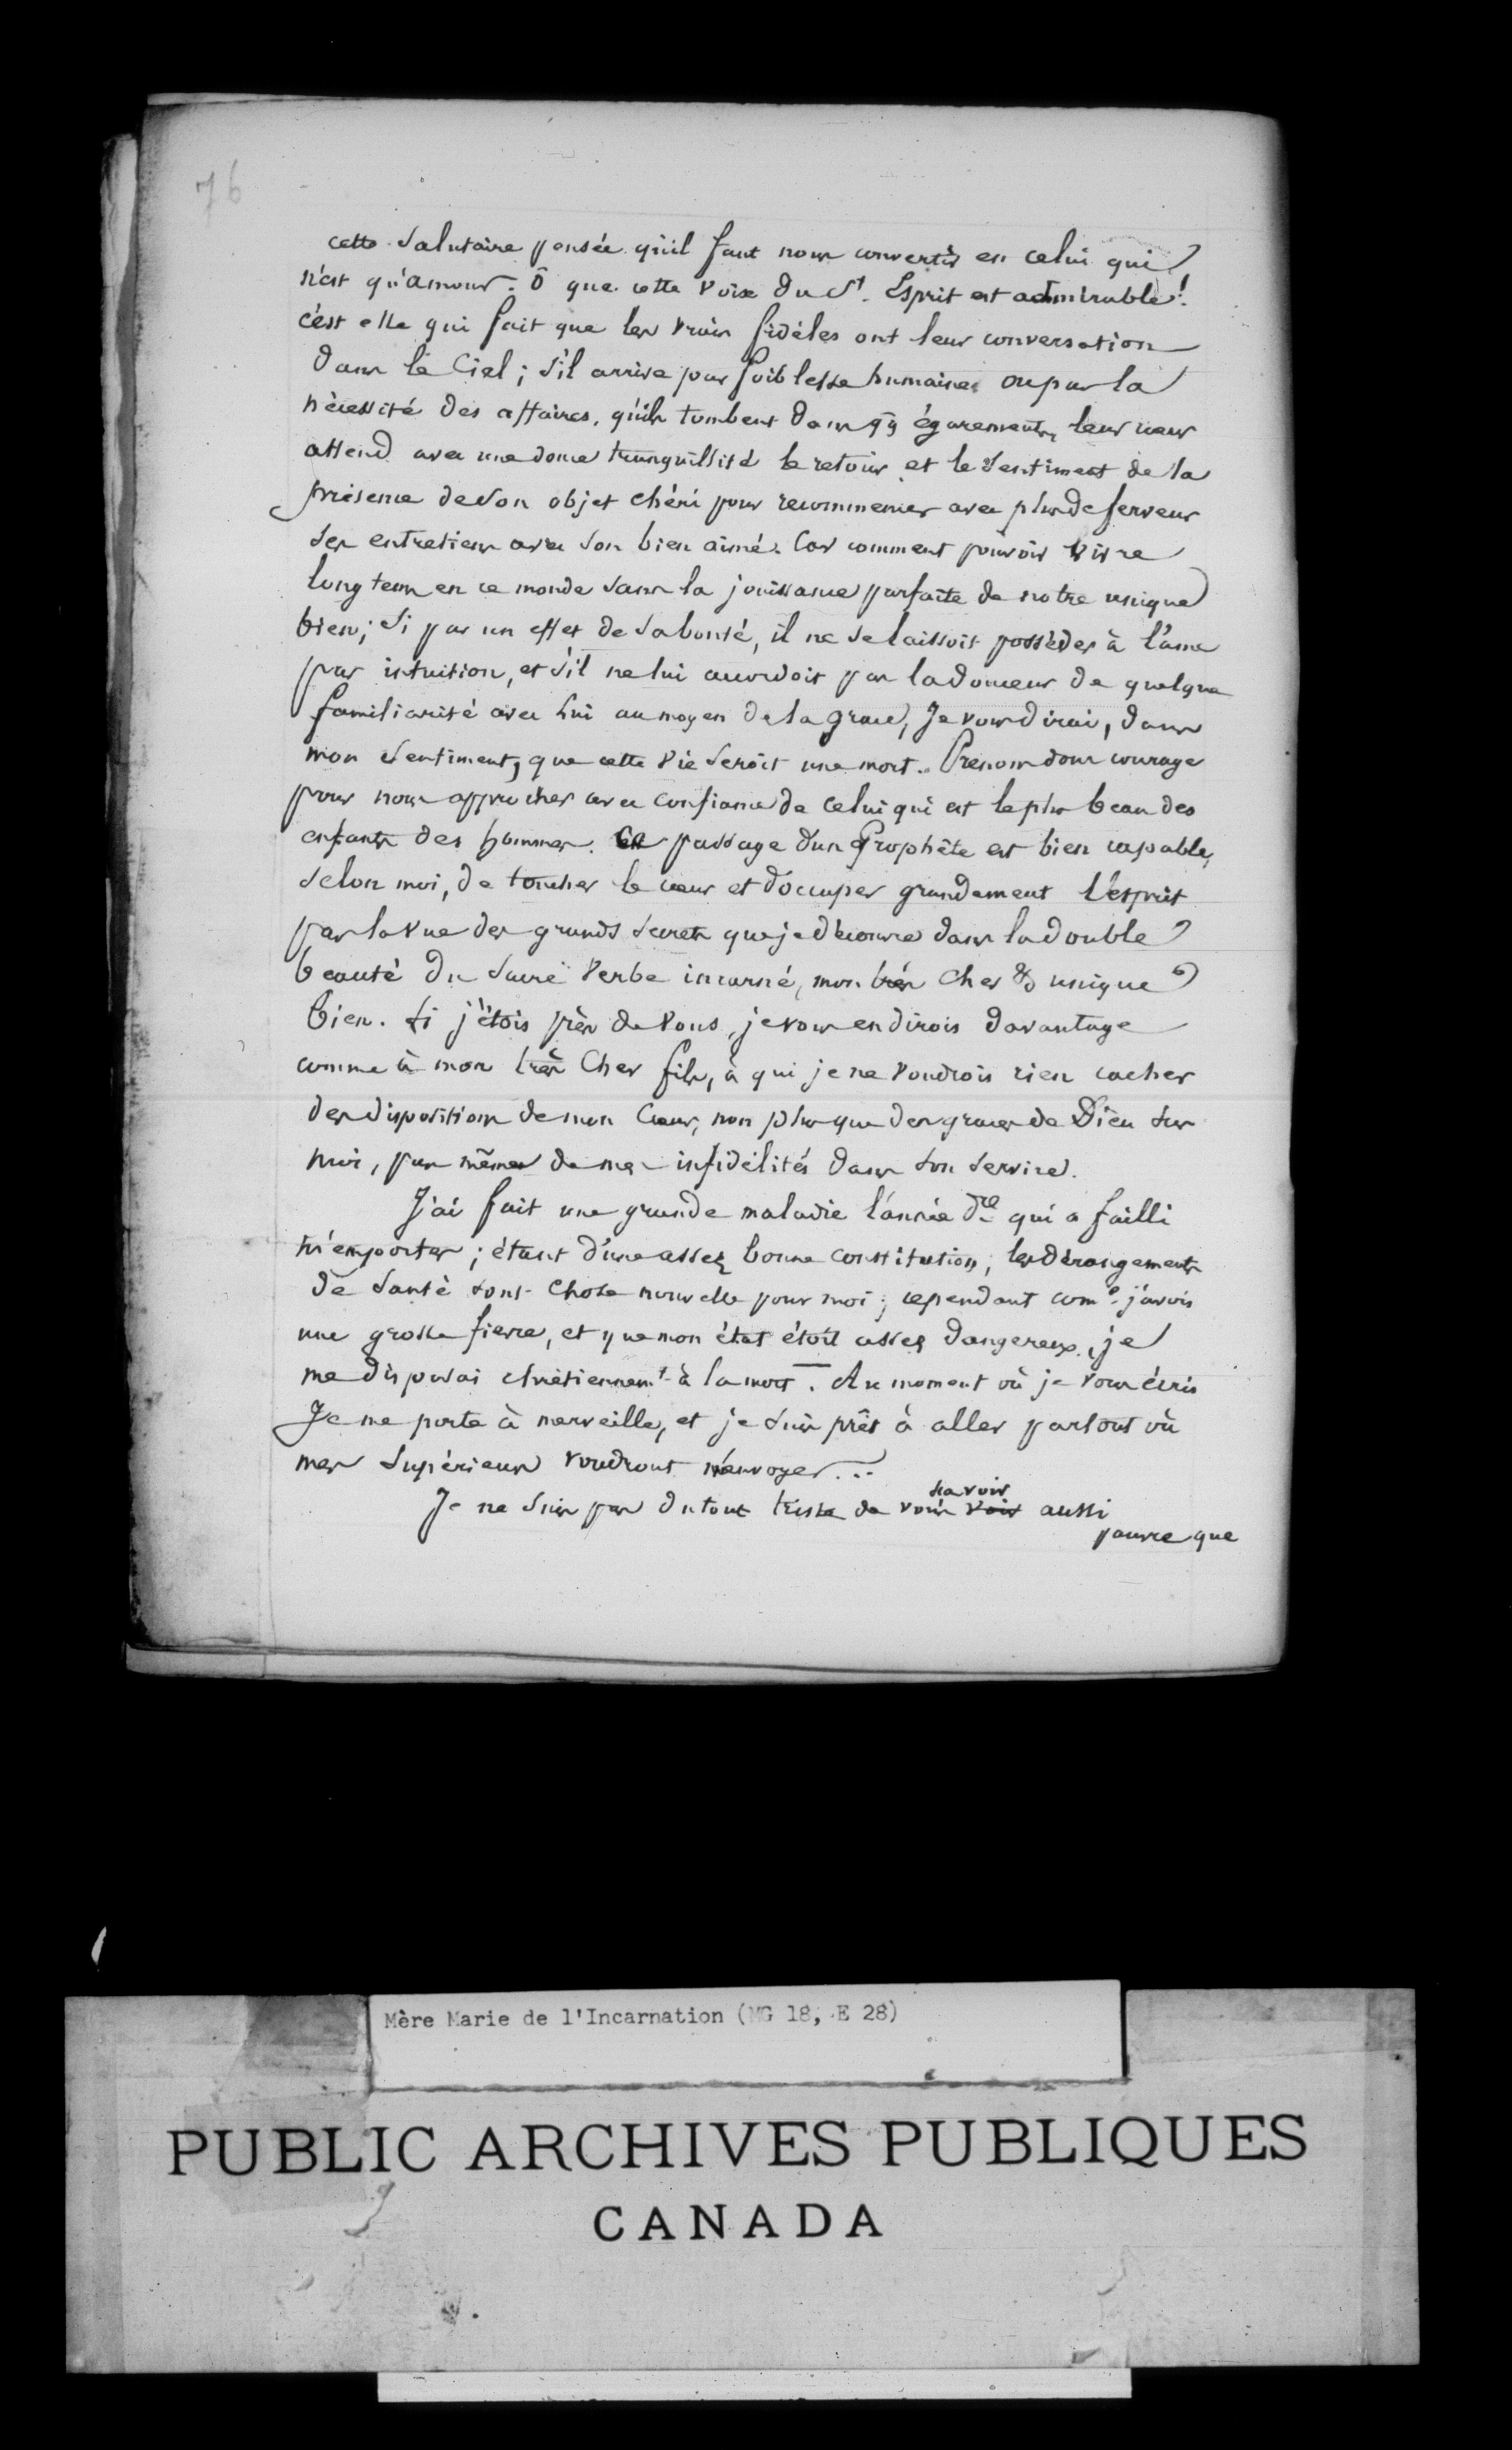 76
cette salutaire pensée qu'il faut nous convertir en celui qui
n'est qu'amour. Ô que cette voix du St. Esprit est admirable!
c'est elle qui fait que les vrais fidéles ont leur conversation
dans le Ciel; s'il arrive par foiblesse humaine ou par la
nécessité des affaires, qu'ils tombent dans qq égarements, leur cœur
attend avec une douce tranquillité le retour et le sentiment de la
présence de son objet chéri pour recommencer avec plus de ferveur
ses entretiens avec son bien aimé. Car comment pouvoir vivre
longtems en ce monde sans la jouissance parfaite de notre unique
bien; si par un effet de sa bonté, il ne se laissoit posséder à l'ame
par intuition, et s'il ne lui accordoit pas la douceur de quelque
familiarité avec lui au moyen de la grace, Je vous dirai, dans
mon sentiment, que cette vie seroit une mort. Prenons donc courage
pour nous approcher avec confiance de celui qui est le plus beau des
enfants des hommes. Ce passage d'un Prophète est bien capable,
selon moi, de toucher le cœur et d'occuper grandement l'esprit
par la vue des grands secrets que je découvre dans la double
beauté du Sacré Verbe incarné, mon très cher & unique
bien. Si j'étois près de vous, je vous en dirois davantage
comme à mon très cher fils, à qui je ne voudrois rien cacher
des dispositions de mon Cœur, non plus que des graces de Dieu sur
moi, pas même de mes infidélités dans son service.
J'ai fait une grande maladie l'année dre qui a failli
m'emporter; étant d'une assez bonne constitution, les dérangements
de santé sont chose nouvelle pour moi; cependant come j'avois
une grosse fievre, et que mon état étoit assez dangereux, je
me disposai chrétiennemt à la mort. Au moment où je vous écris
Je me porte à merveille, et je suis prêt à aller partout où
mes Supérieurs voudront m'envoyer...
Je ne suis pas du tout triste de vous voir savoir aussi
pauvre que
Mère Marie de l'Incarnation (MG 18, E 28)
PUBLIC ARCHIVES PUBLIQUES
CANADA